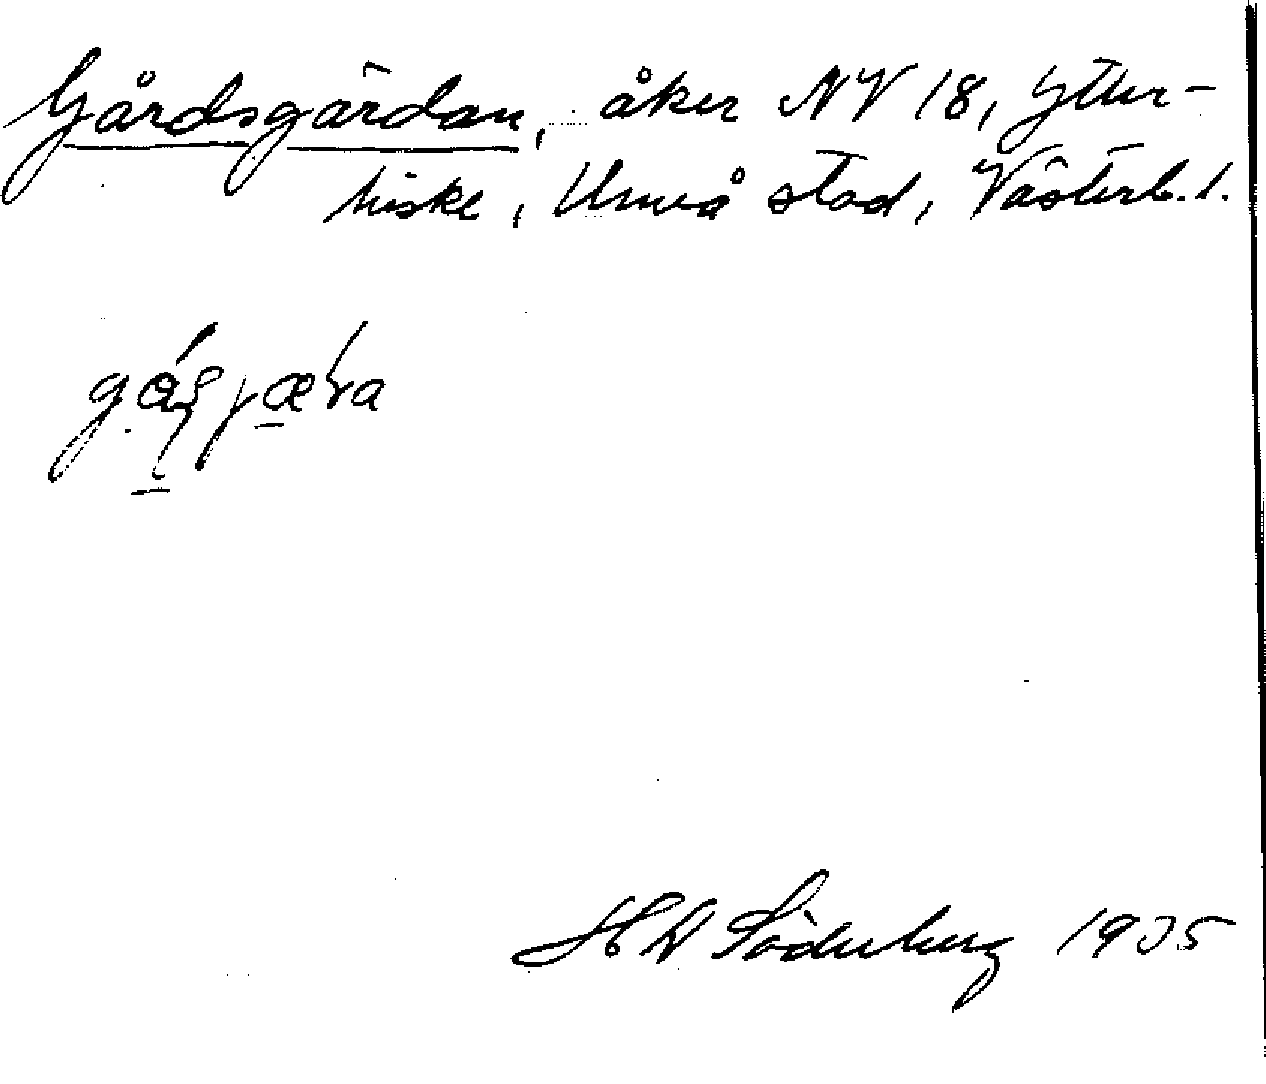 Gårdsgärdan, åker NV 18, Ytter-
hiske, Umeå stad, Västerb. l.
Söderberg 1935